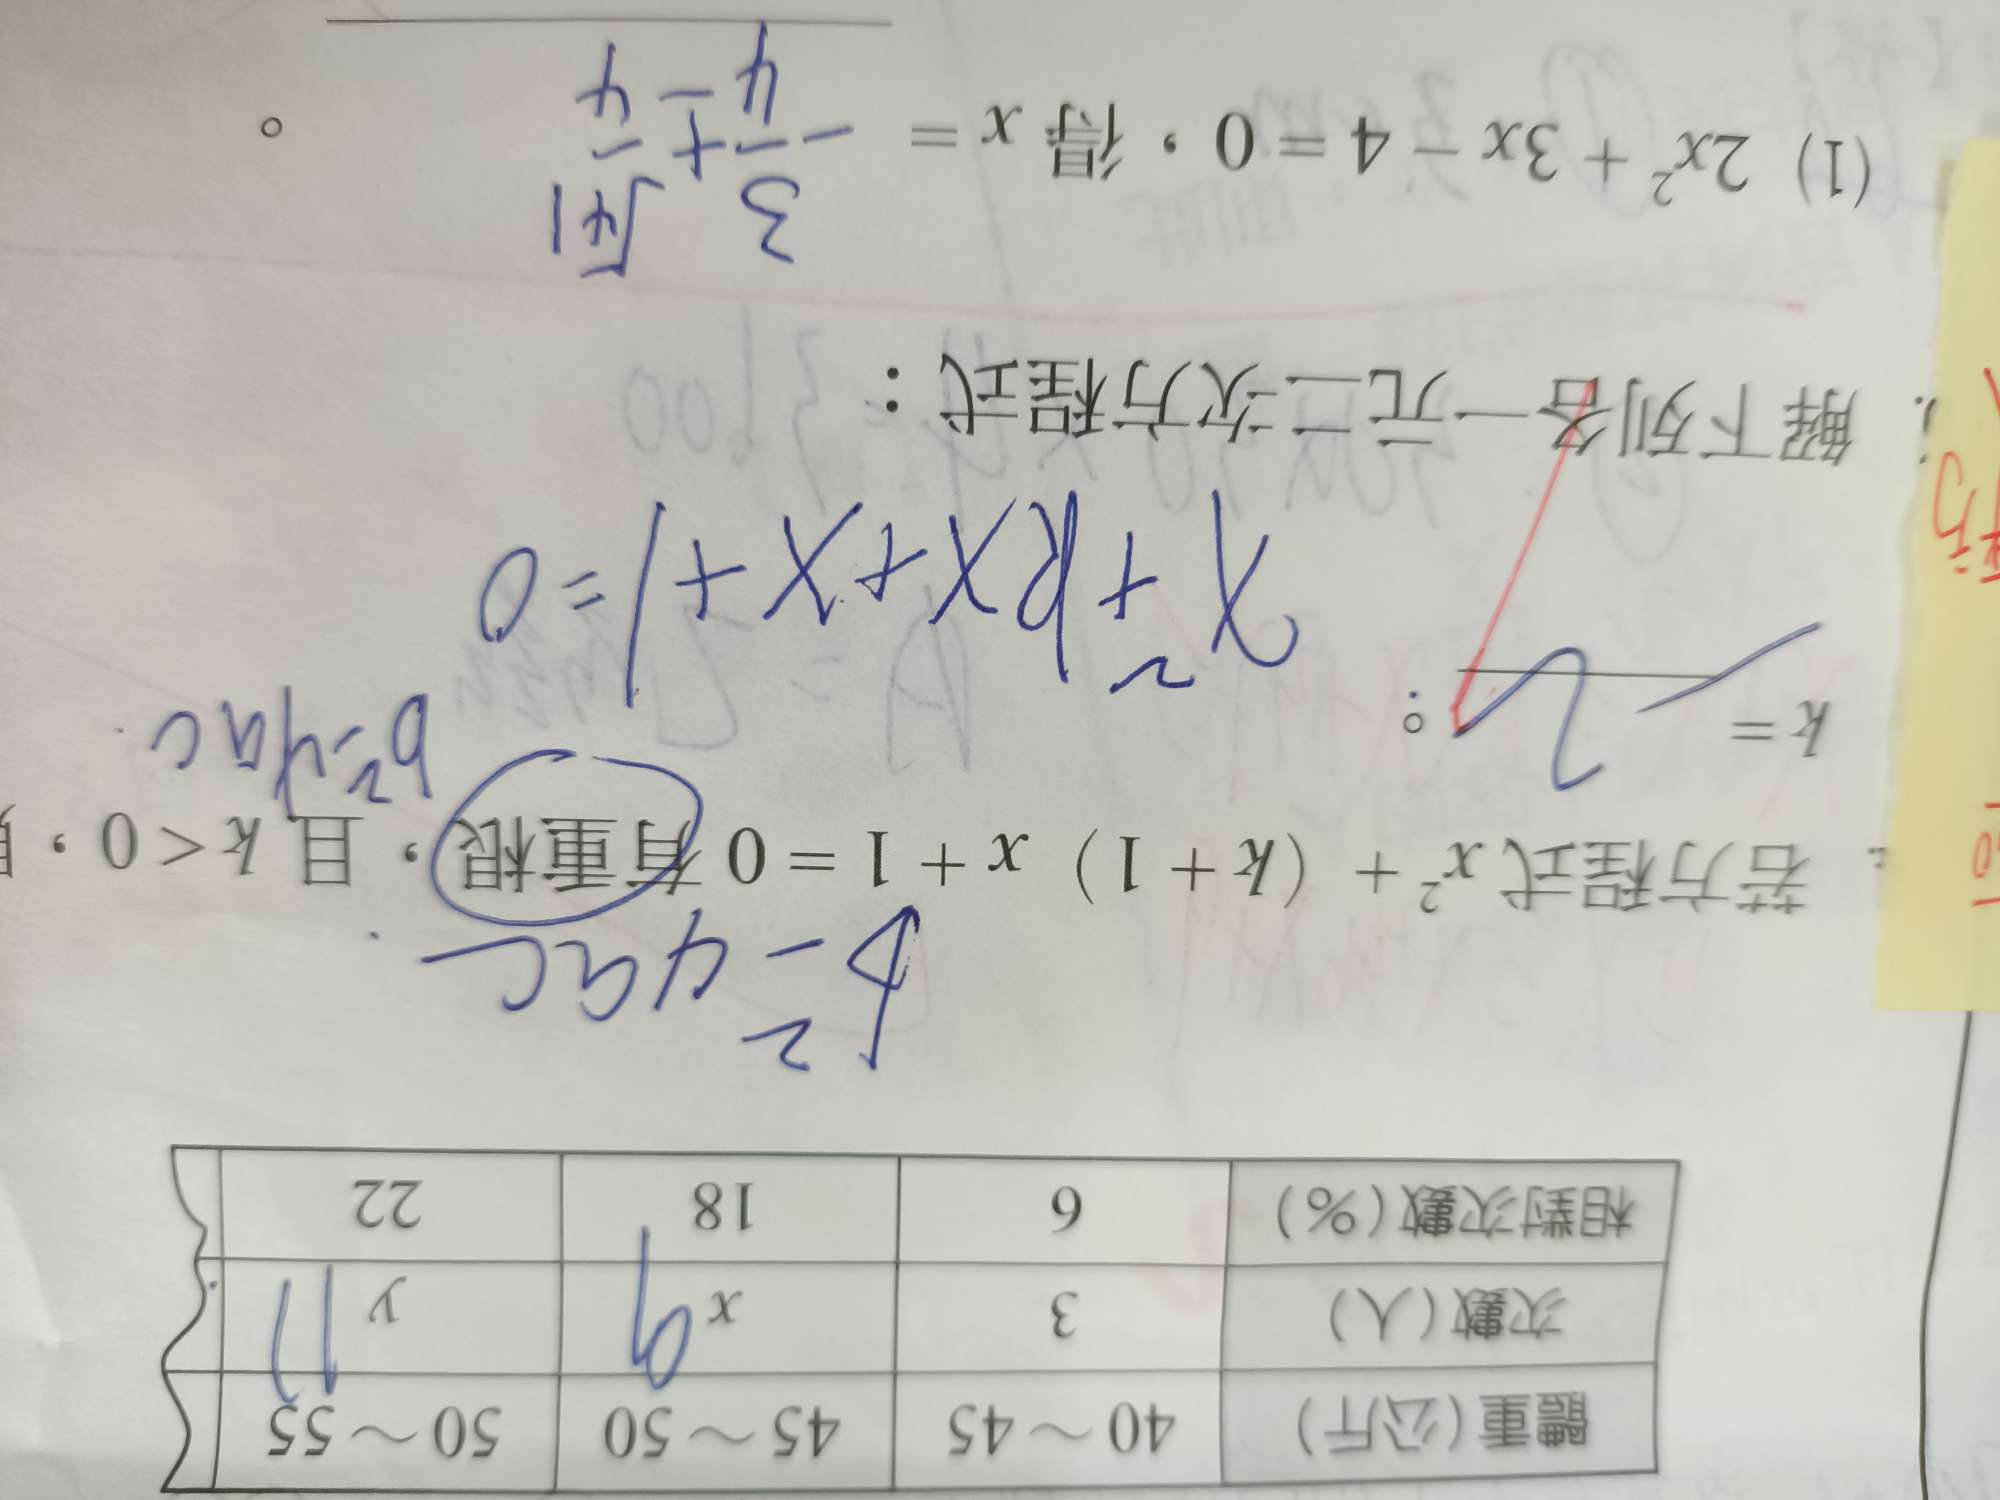 體重（公斤） 40～45 45～50 50～55
次數（人） 3 x 9 y 11
相對次數（%） 6 18 22
b²-4ac
若方程式 x² + （k + 1）x + 1 = 0 有重根，且 k < 0，
b²-4ac
k = 。
x²+kx+x+1=0
解下列各一元二次方程式：
(1) 2x² + 3x − 4 = 0，得 x = -3/4 ± √41/4 。